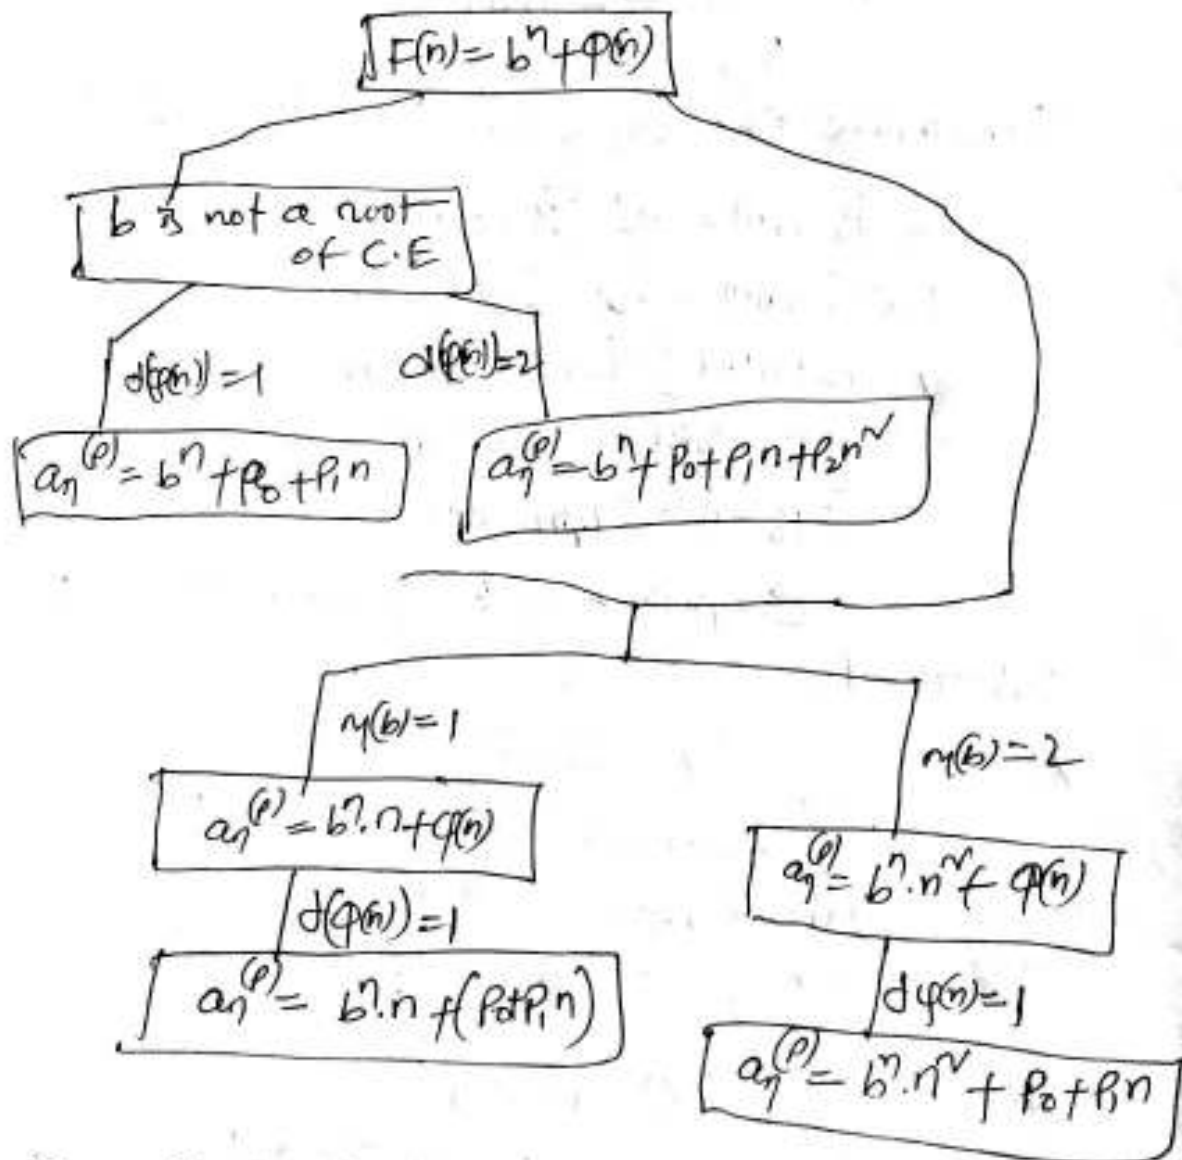 F(n) = b^n + φ(n)
b is not a root
of C.E
d(φ(n)) = 1
d(φ(n)) = 2
a_n^(p) = b^n + p_0 + p_1 n
a_n^(p) = b^n + p_0 + p_1 n + p_2 n^2
m(b) = 1
m(b) = 2
a_n^(p) = b^n . n + φ(n)
a_n^(p) = b^n . n^2 + φ(n)
d(φ(n)) = 1
dφ(n) = 1
a_n^(p) = b^n . n + (p_0 + p_1 n)
a_n^(p) = b^n . n^2 + p_0 + p_1 n